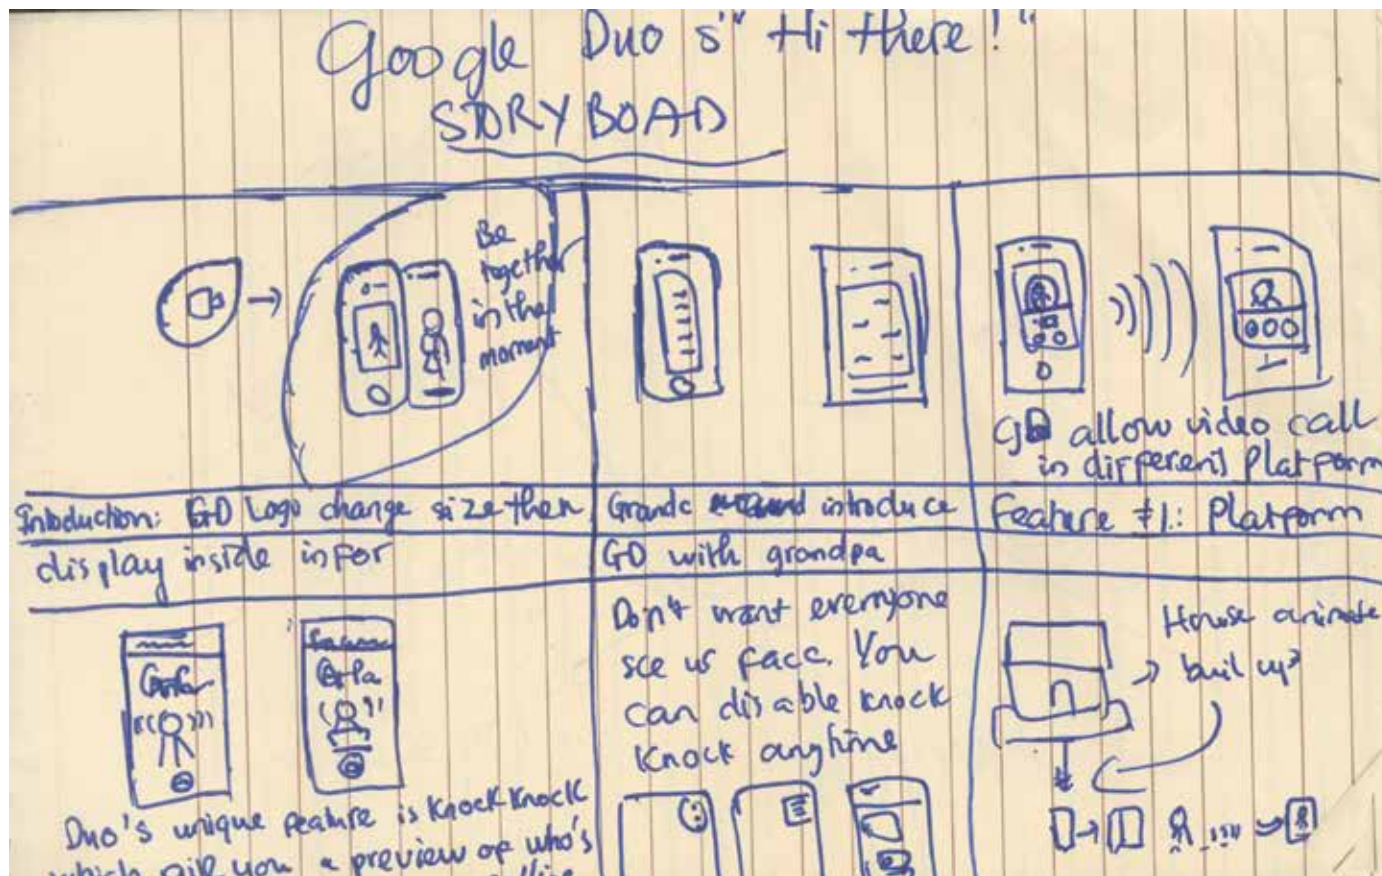 Google Duo's "Hi there!"
STORYBOAD
Be
together
in the
moment
GD allow video call
in different Platform
Introduction: GD Logo change size then
display inside infor
Grandc introduce
GD with grandpa
Feature #1: Platform
Duo's unique feature is Knock Knock
which you a preview of who's
Don't want everyone
see us face. You
can disable knock
knock anytime
House animate
buil up?